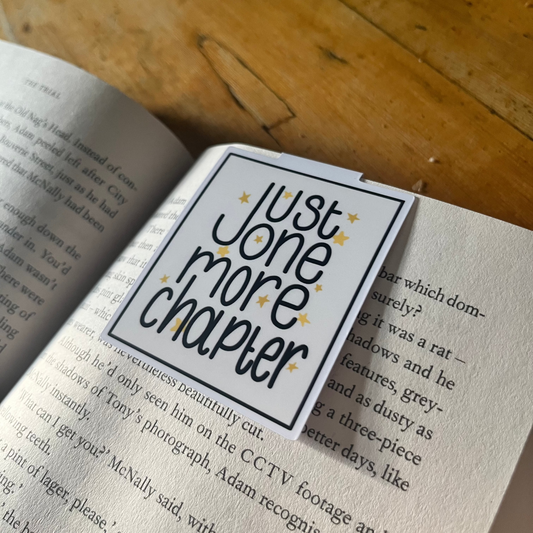 THE TRIAL
the Old Nag's Head. Instead of con-
Adam peeled left after City
Bouverie Street, just as he had
that McNally had been
enough down the
under in. You'd
Adam wasn't
there were
ting of
ling
Just
one
more
chapter
bar which dom-
surely?
it was a rat –
shadows and he
features, grey-
and as dusty as
a three-piece
better days, like
was nevertheless beautifully cut.
Although he'd only seen him on the CCTV footage and
shadows of Tony's photograph, Adam recognis
McNally instantly.
'What can I get you?' McNally said, with
ing teeth.
a pint of lager, please.'